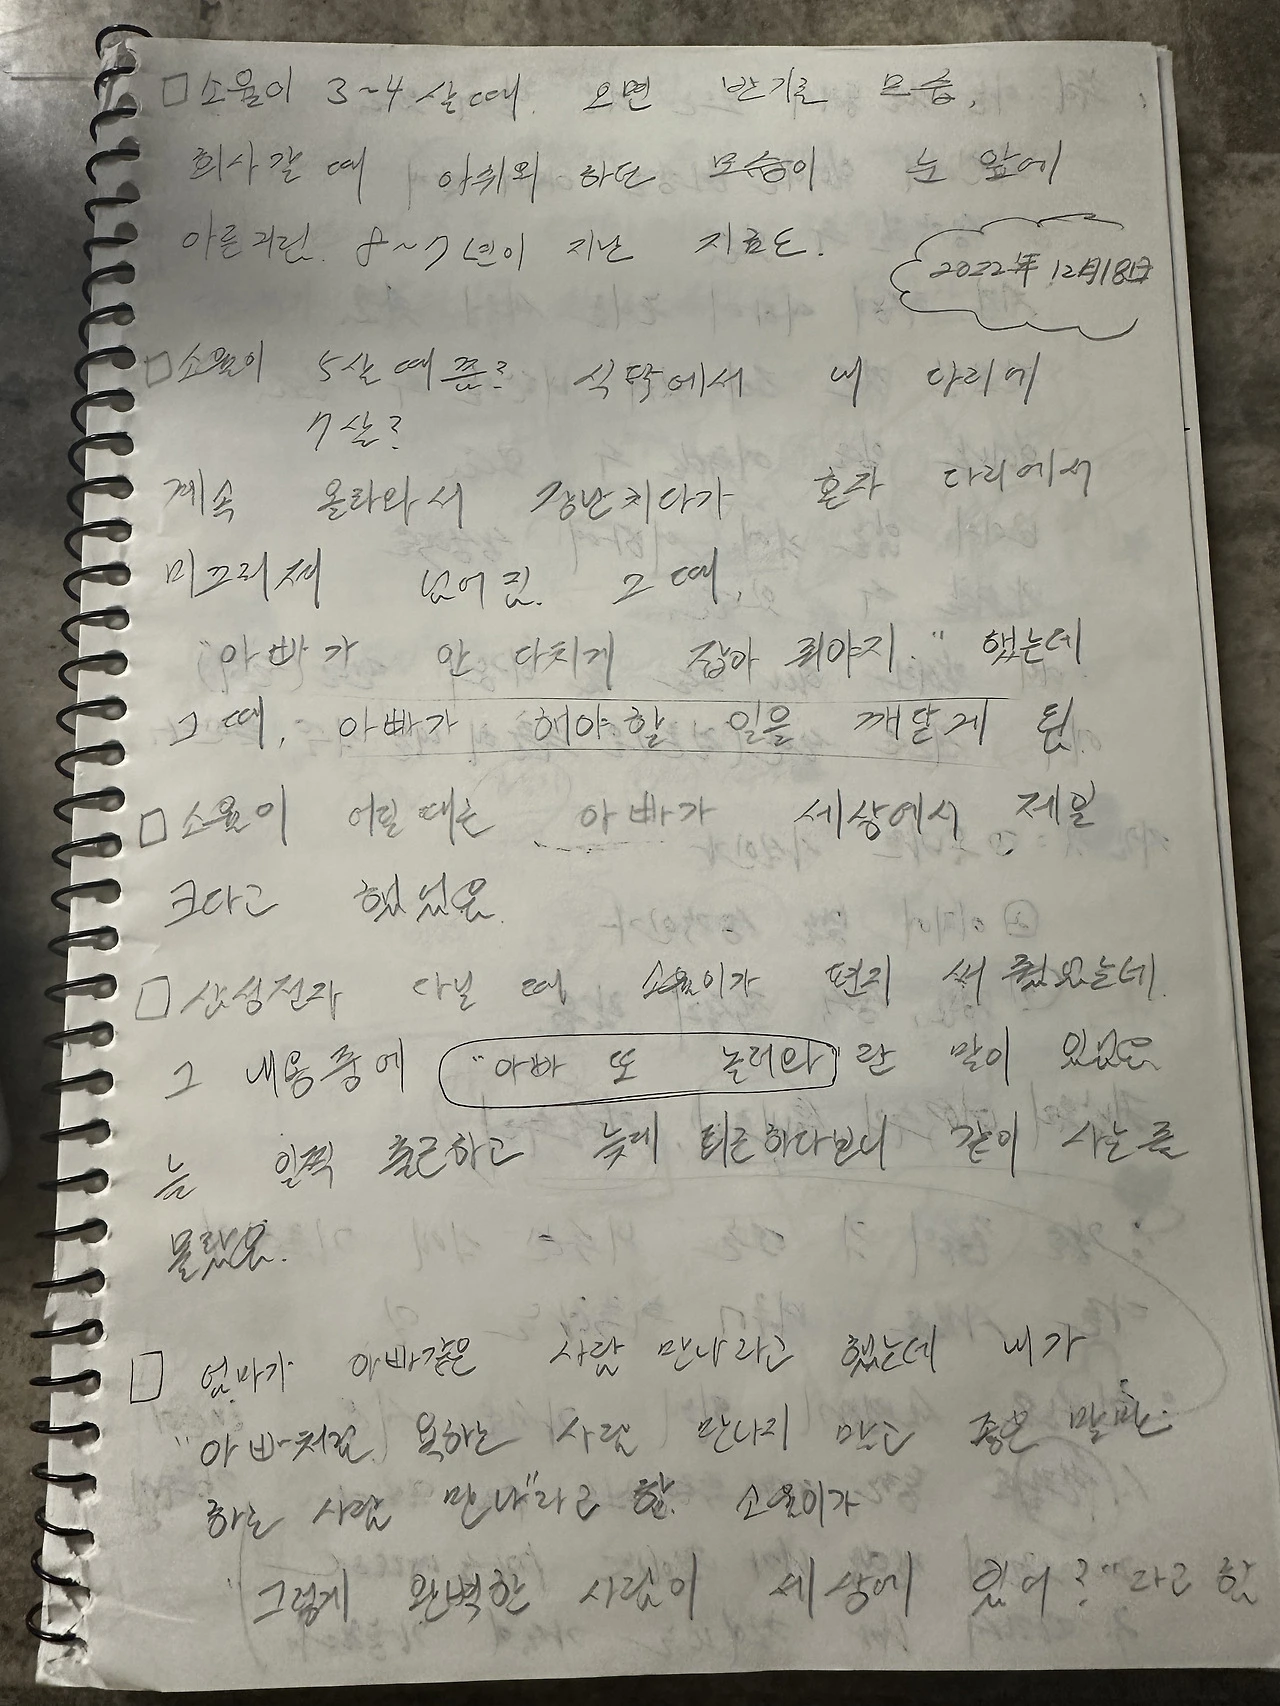 □ 소율이 3~4살때. 오면 반기를 모습,
회사갈 때 아쉬워 하던 모습이 눈 앞에
아른거림. 8~7년이 지난 지금도.
2022年 12月18日
□ 소율이 5살 때쯤? 식탁에서 내 다리에
7살?
계속 올라와서 장난치다가 혼자 다리에서
미끄러져 넘어짐. 그 때,
"아빠가 안 다치게 잡아 줘야지." 했는데
그 때, 아빠가 해야할 일을 깨닫게 됨.
□ 소율이 어릴 때는 아빠가 세상에서 제일
크다고 했었음.
□ 삼성전자 다닐 때 소율이가 편지 써 줬었는데.
그 내용중에 "아빠 또 놀러와"란 말이 있었음
늘 일찍 출근하고 늦게 퇴근하다보니 같이 사는 줄
몰랐음.
□ 엄마가 아빠같은 사람 만나라고 했는데 내가
"아빠처럼 욕하는 사람 만나지 말고 좋은 말만
하는 사람 만나"라고 함. 소율이가
"그렇게 완벽한 사람이 세상에 있어?"라고 함